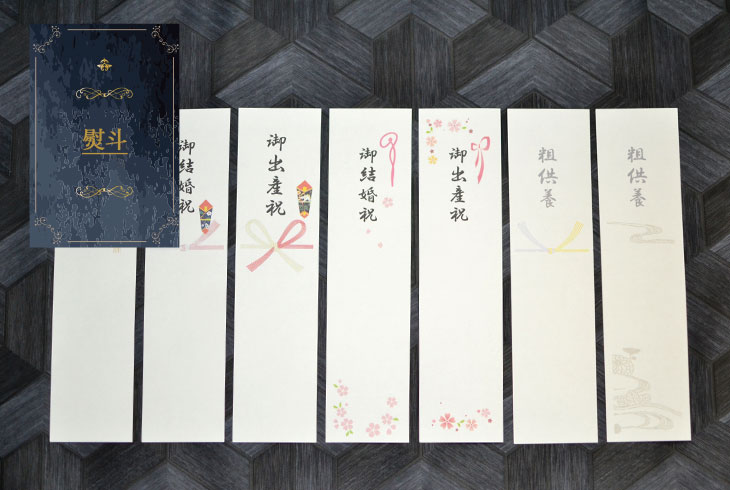 熨斗
御結婚祝
御出産祝
御結婚祝
御出産祝
粗供養
粗供養